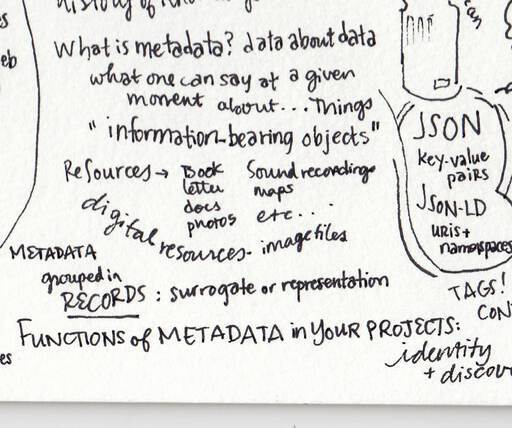 history of
What is metadata? data about data
what one can say at a given
moment about... Things
"information-bearing objects"
Resources → Book
letter
docs
photos
Sound recordings
maps
etc...
digital resources - image files
METADATA
grouped in
RECORDS: surrogate or representation
FUNCTIONS of METADATA in YOUR PROJECTS:
identity
+ discov
JSON
key-value
pairs
JSON-LD
URIs +
namespaces
TAGS!
CON
es
eb
es
an